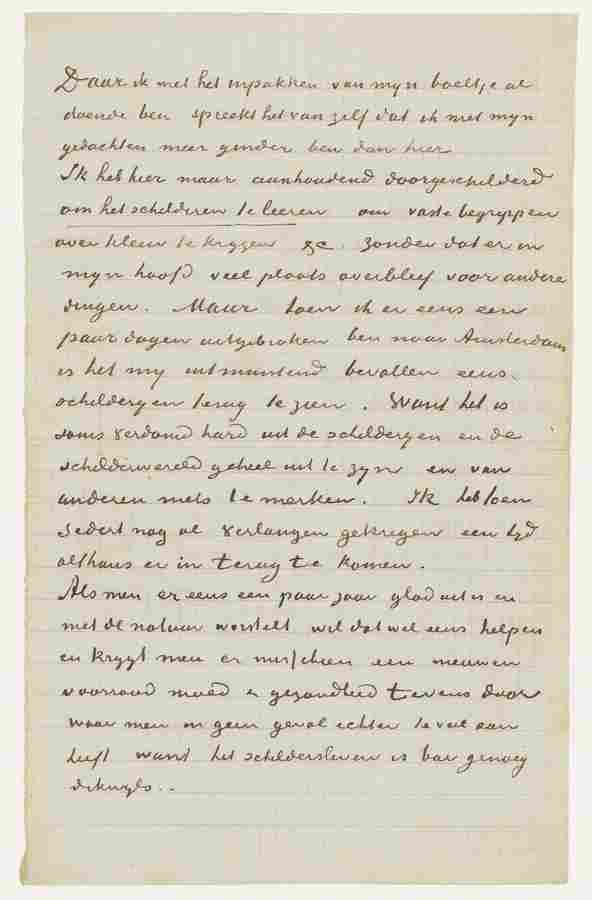 Daar ik met het inpakken van myn boeltje al
doende ben spreekt het van zelf dat ik met myn
gedachten meer ginder ben dan hier
Ik heb hier maar aanhoudend doorgeschilderd
om het schilderen te leeren om vaste begrippen
over kleur te krygen &c. zonder dat er in
myn hoofd veel plaats overbleef voor andere
dingen. Maar toen ik er eens een
paar dagen uitgebroken ben naar Amsterdam
is het my uitmuntend bevallen eens
schilderyen terug te zien. Want het is
soms verdomd hard uit de schilderyen en de
schilderwereld geheel uit te zyn en van
anderen niets te merken. Ik heb toen
sedert nog al verlangen gekregen een tyd
althans er in terug te komen.
Als men er eens een paar jaar glad uit is en
met de natuur worstelt wil dat wel eens helpen
en krygt men er misschien een nieuwen
voorraad moed en gezondheid tevens door
waar men in geen geval echter te veel aan
heeft want het schildersleven is bar genoeg
dikwyls..